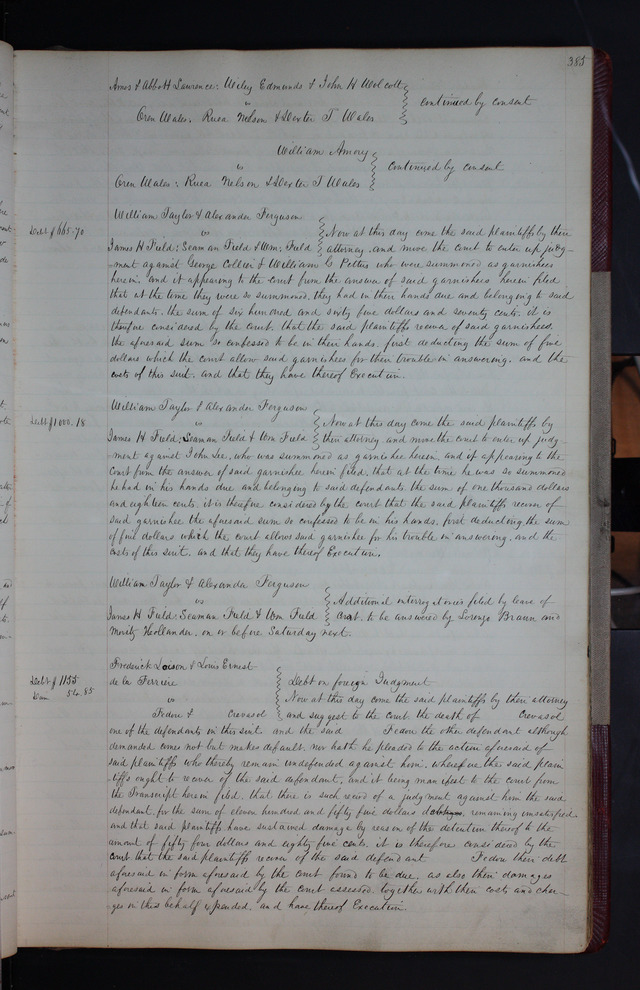 385
Amos & Abbott Lawrence: Wiley Edmunds & John H Wolcott
vs
continued by consent
Oren Wales: Ruea Nelson & Dexter T Wales
William Amory
vs
continued by consent
Oren Wales: Ruea Nelson & Dexter T Wales
William Taylor & Alexander Ferguson
Debt $665.70
vs
Now at this day come the said plaintiffs by their
James H Field: Seaman Field & Wm: Field attorney. and move the court to enter up judg-
ment against George Collier & William G Pettus who were summoned as garnishees
herein. and it appearing to the court from the answer of said garnishees herein filed
that at the time they were so summoned, they had in their hands due and belonging to said
defendants. the sum of six hundred and sixty five dollars and seventy cents. it is
therefore considered by the court. that the said plaintiffs recover of said garnishees.
the aforesaid sum so confessed to be in their hands. first deducting the sum of five
dollars which the court allow said garnishees for their trouble in answering. and the
costs of this suit. and that they have thereof Execution.
William Taylor & Alexander Ferguson
Debt $1000.18
vs
Now at this day come the said plaintiffs by
James H Field: Seaman Field & Wm Field their attorney and move the court to enter up judg-
ment against John Lee, who was summoned as garnishee herein. and it appearing to the
Court from the answer of said garnishee herein filed, that at the time he was so summoned
he had in his hands due and belonging to said defendants the sum of one thousand dollars
and eighteen cents. it is therefore considered by the court that the said plaintiffs recover of
said garnishee the aforesaid sum so confessed to be in his hands. first deducting the sum
of five dollars which the court allows said garnishee for his trouble in answering. and the
costs of this suit. and that they have thereof Execution.
William Taylor & Alexander Ferguson
vs
Additional interrogatories filed by leave of
James H Field: Seaman Field & Wm Field Court. to be answered by Lorenzo Braun and
Moritz Hollander. on or before Saturday next.
Frederick Loison & Louis Ernest
Debt $1155
de la Ferriere
Debt on foreign Judgment
Dam 54.85
vs
Now at this day come the said plaintiffs by their attorney
Fedore & Crevasol and suggest to the court the death of Crevasol
one of the defendants in this suit. and the said Fedore the other defendant although
demanded comes not but makes default. nor hath he pleaded to the action aforesaid of
said plaintiffs who thereby remain undefended against him. wherefore the said plain
tiffs ought to recover of the said defendant, and it being manifest to the court from
the Transcript herein filed. that there is such record of a judgment against him the said
defendant. for the sum of eleven hundred and fifty five dollars remaining unsatisfied
and that said plaintiffs have sustained damage by reason of the detention thereof to the
amount of fifty four dollars and eighty five cents. it is therefore considered by the
court that the said plaintiffs recover of the said defendant Fedore their debt
aforesaid in form aforesaid by the court found to be due. as also their damages
aforesaid in form aforesaid by the court assessed. together with their costs and char-
ges in this behalf expended. and have thereof Execution.